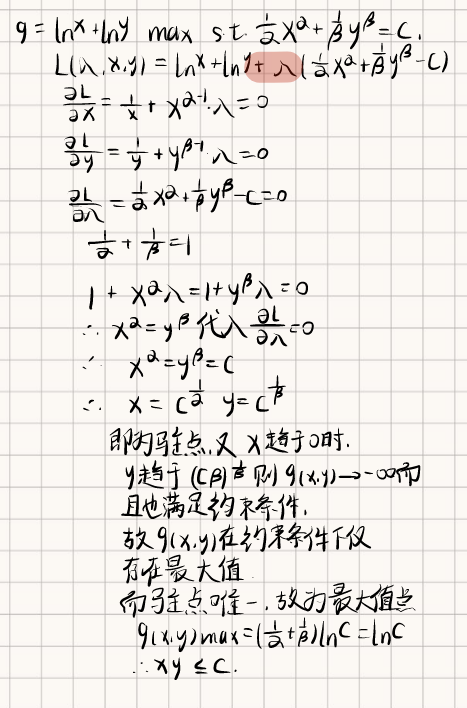 g = ln x + ln y max s.t. 1/α x^α + 1/β y^β = C.
L(λ, x, y) = ln x + ln y + λ(1/α x^α + 1/β y^β - C)
∂L/∂x = 1/x + x^(α-1)·λ = 0
∂L/∂y = 1/y + y^(β-1)·λ = 0
∂L/∂λ = 1/α x^α + 1/β y^β - C = 0
1/α + 1/β = 1
1 + x^α λ = 1 + y^β λ = 0
∴ x^α = y^β 代入 ∂L/∂λ = 0
∴ x^α = y^β = C
∴ x = C^(1/α) y = C^(1/β)
即为驻点,又 x趋于0时,
y趋于 (Cβ)^(1/β) 则 g(x,y) → -∞ 而
且也满足约束条件,
故g(x,y)在约束条件下仅
存在最大值
而驻点唯一,故为最大值点
g(x,y)max = (1/α + 1/β) ln C = ln C
∴ xy ≤ C.